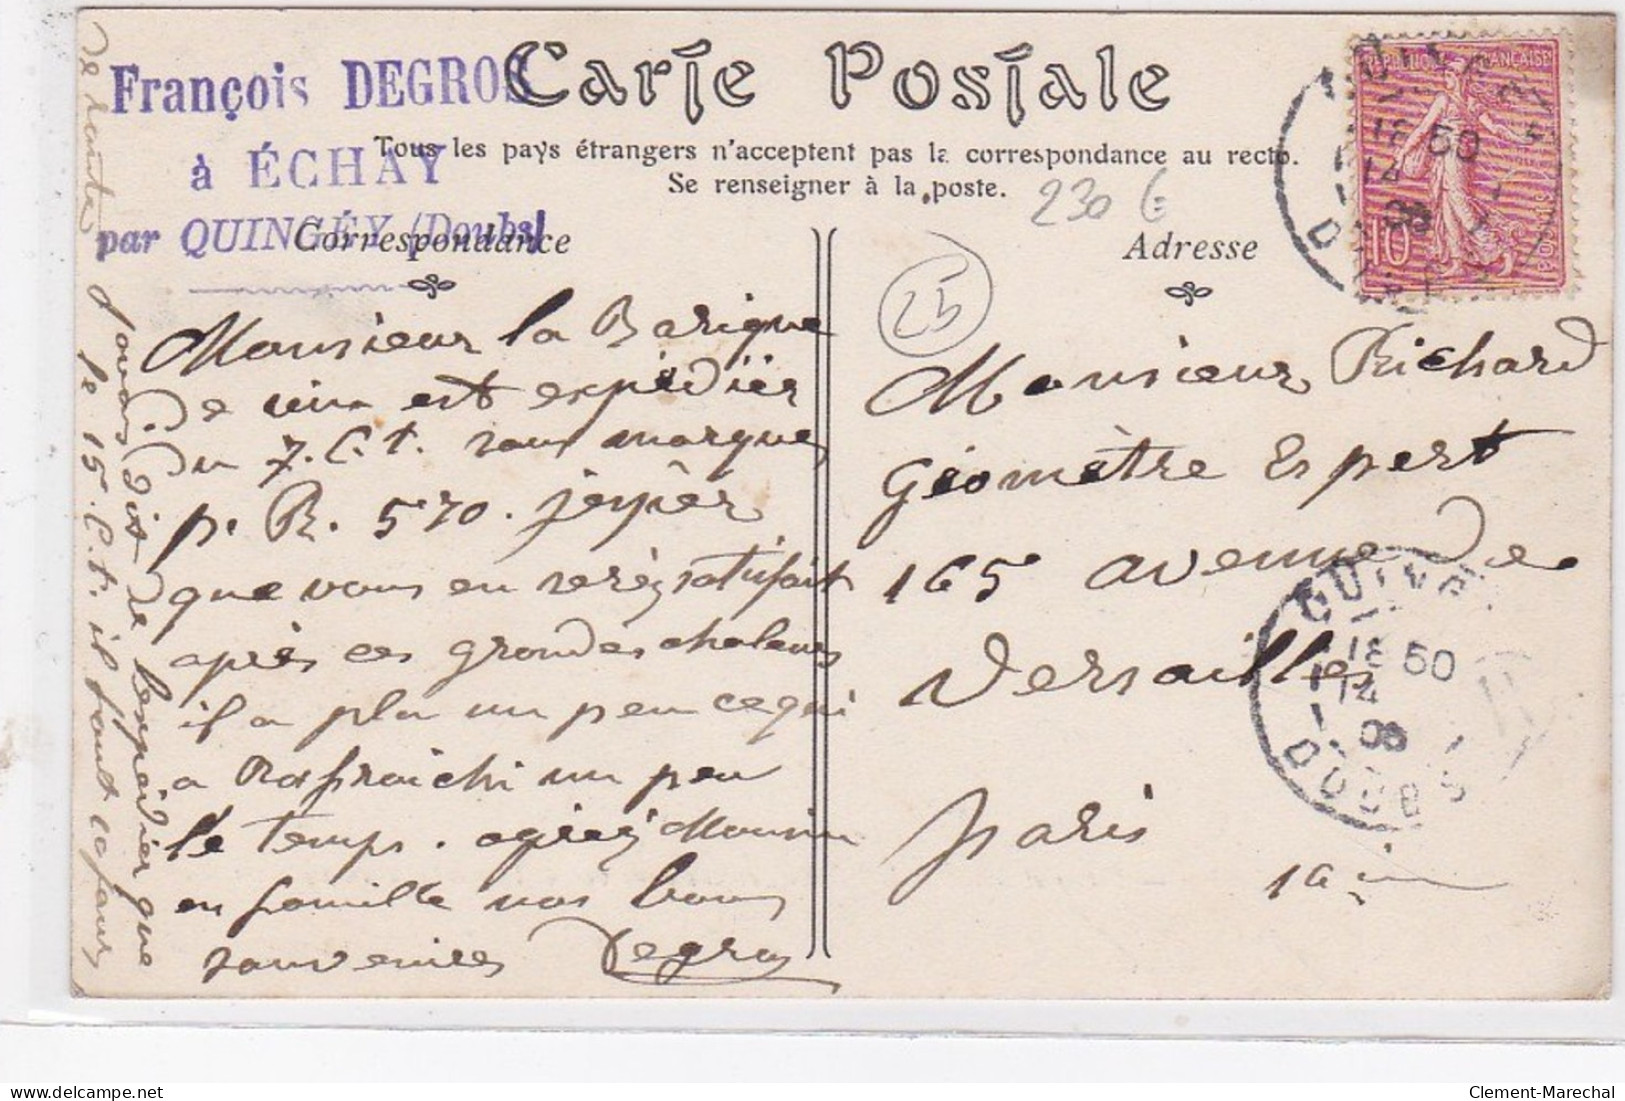 François DEGROS
à ÉCHAY
par QUINGÉY (Doubs)
Carte Postale
Tous les pays étrangers n'acceptent pas la correspondance au recto.
Se renseigner à la poste.
230 €
Correspondance
Adresse
25
RÉPUBLIQUE FRANÇAISE
10
POSTES
Monsieur la Barique
de vin est expédiér
du 7. C. t. sans marques
p. R. 570. jespèr
que vous en serèz satisfait
après ces grandes chaleurs
il a plu un peu cequi
a Rafraichi un peu
le temps. agréez Monsieur
en famille nos bons
souvenirs Degros
javais dit de lexpédier que
le 15. C. t. il faut
Monsieur Richard
Géomètre Expert
165 avenue de
Versailles
Paris
QUINGEY
18 50
14
06
DOUBS
QUINGEY
18 50
14
06
DOUBS
Clement-Marechal